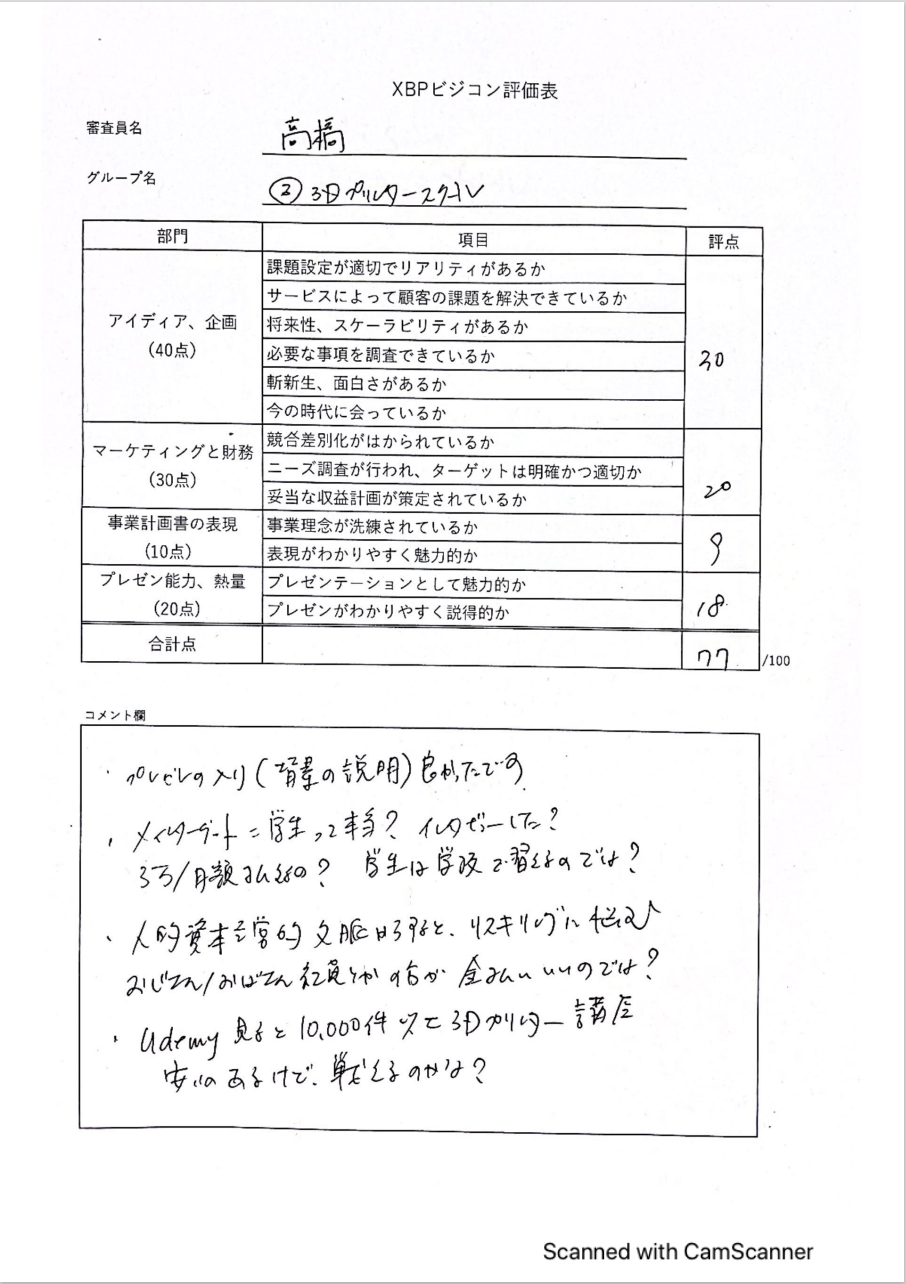 XBPビジコン評価表
審査員名 高橋
グループ名 ② 3Dプリンタースクール
部門 項目 評点
アイディア、企画
(40点)
課題設定が適切でリアリティがあるか
サービスによって顧客の課題を解決できているか
将来性、スケーラビリティがあるか
必要な事項を調査できているか
斬新生、面白さがあるか
今の時代に会っているか
30
マーケティングと財務
(30点)
競合差別化がはかられているか
ニーズ調査が行われ、ターゲットは明確かつ適切か
妥当な収益計画が策定されているか
20
事業計画書の表現
(10点)
事業理念が洗練されているか
表現がわかりやすく魅力的か
9
プレゼン能力、熱量
(20点)
プレゼンテーションとして魅力的か
プレゼンがわかりやすく説得的か
18
合計点 77 /100
コメント欄
・プレゼンの入り(背景の説明)良かったです
・メインターゲット=学生って本当? インタビューした?
3万/月額払えるの? 学生は学校で習えるのでは?
・人的資本経営的文脈からすると、リスキリングに悩む
おじさん/おばさん社員とかの方が金払いいいのでは?
・Udemy見ると10,000件以上3Dプリンター講座
安いのあるけど、戦えるのかな?
Scanned with CamScanner